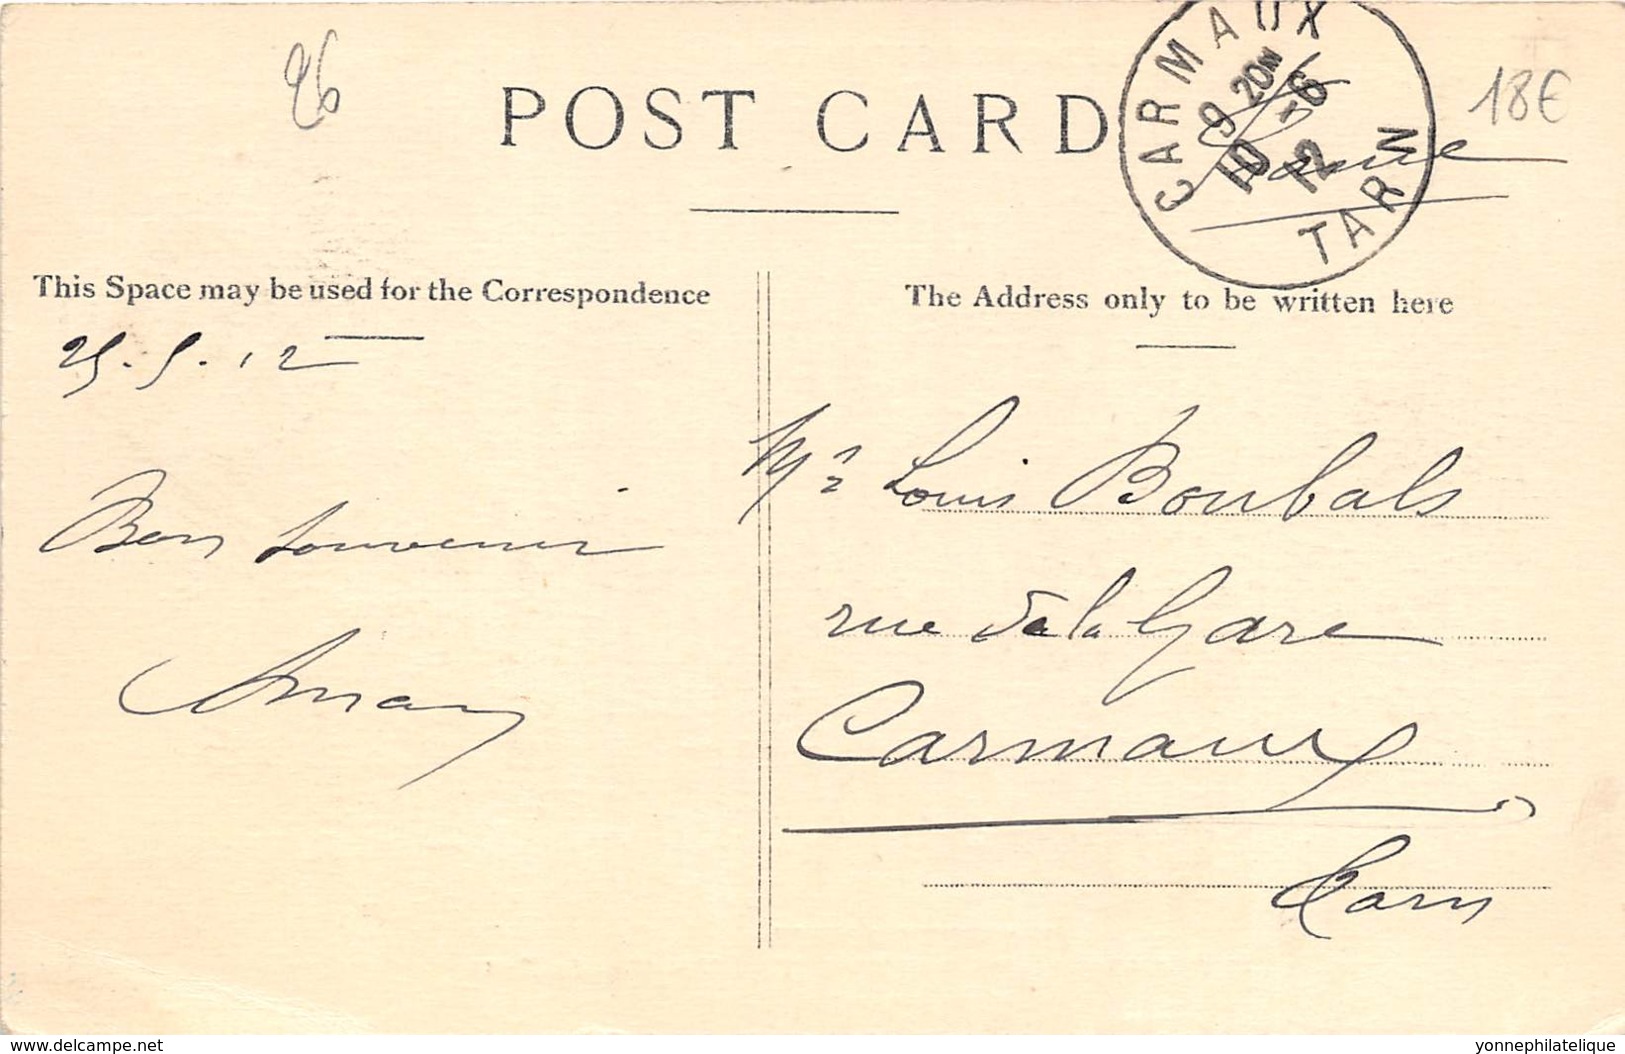 26
POST CARD
CARMAUX
9 20M
10 -6
12
TARN
18€
This Space may be used for the Correspondence
25.5.12
Bon souvenir
The Address only to be written here
Mr Louis Boubals
rue de la Gare
Carmaux
Tarn
www.delcampe.net
yonnephilatelique